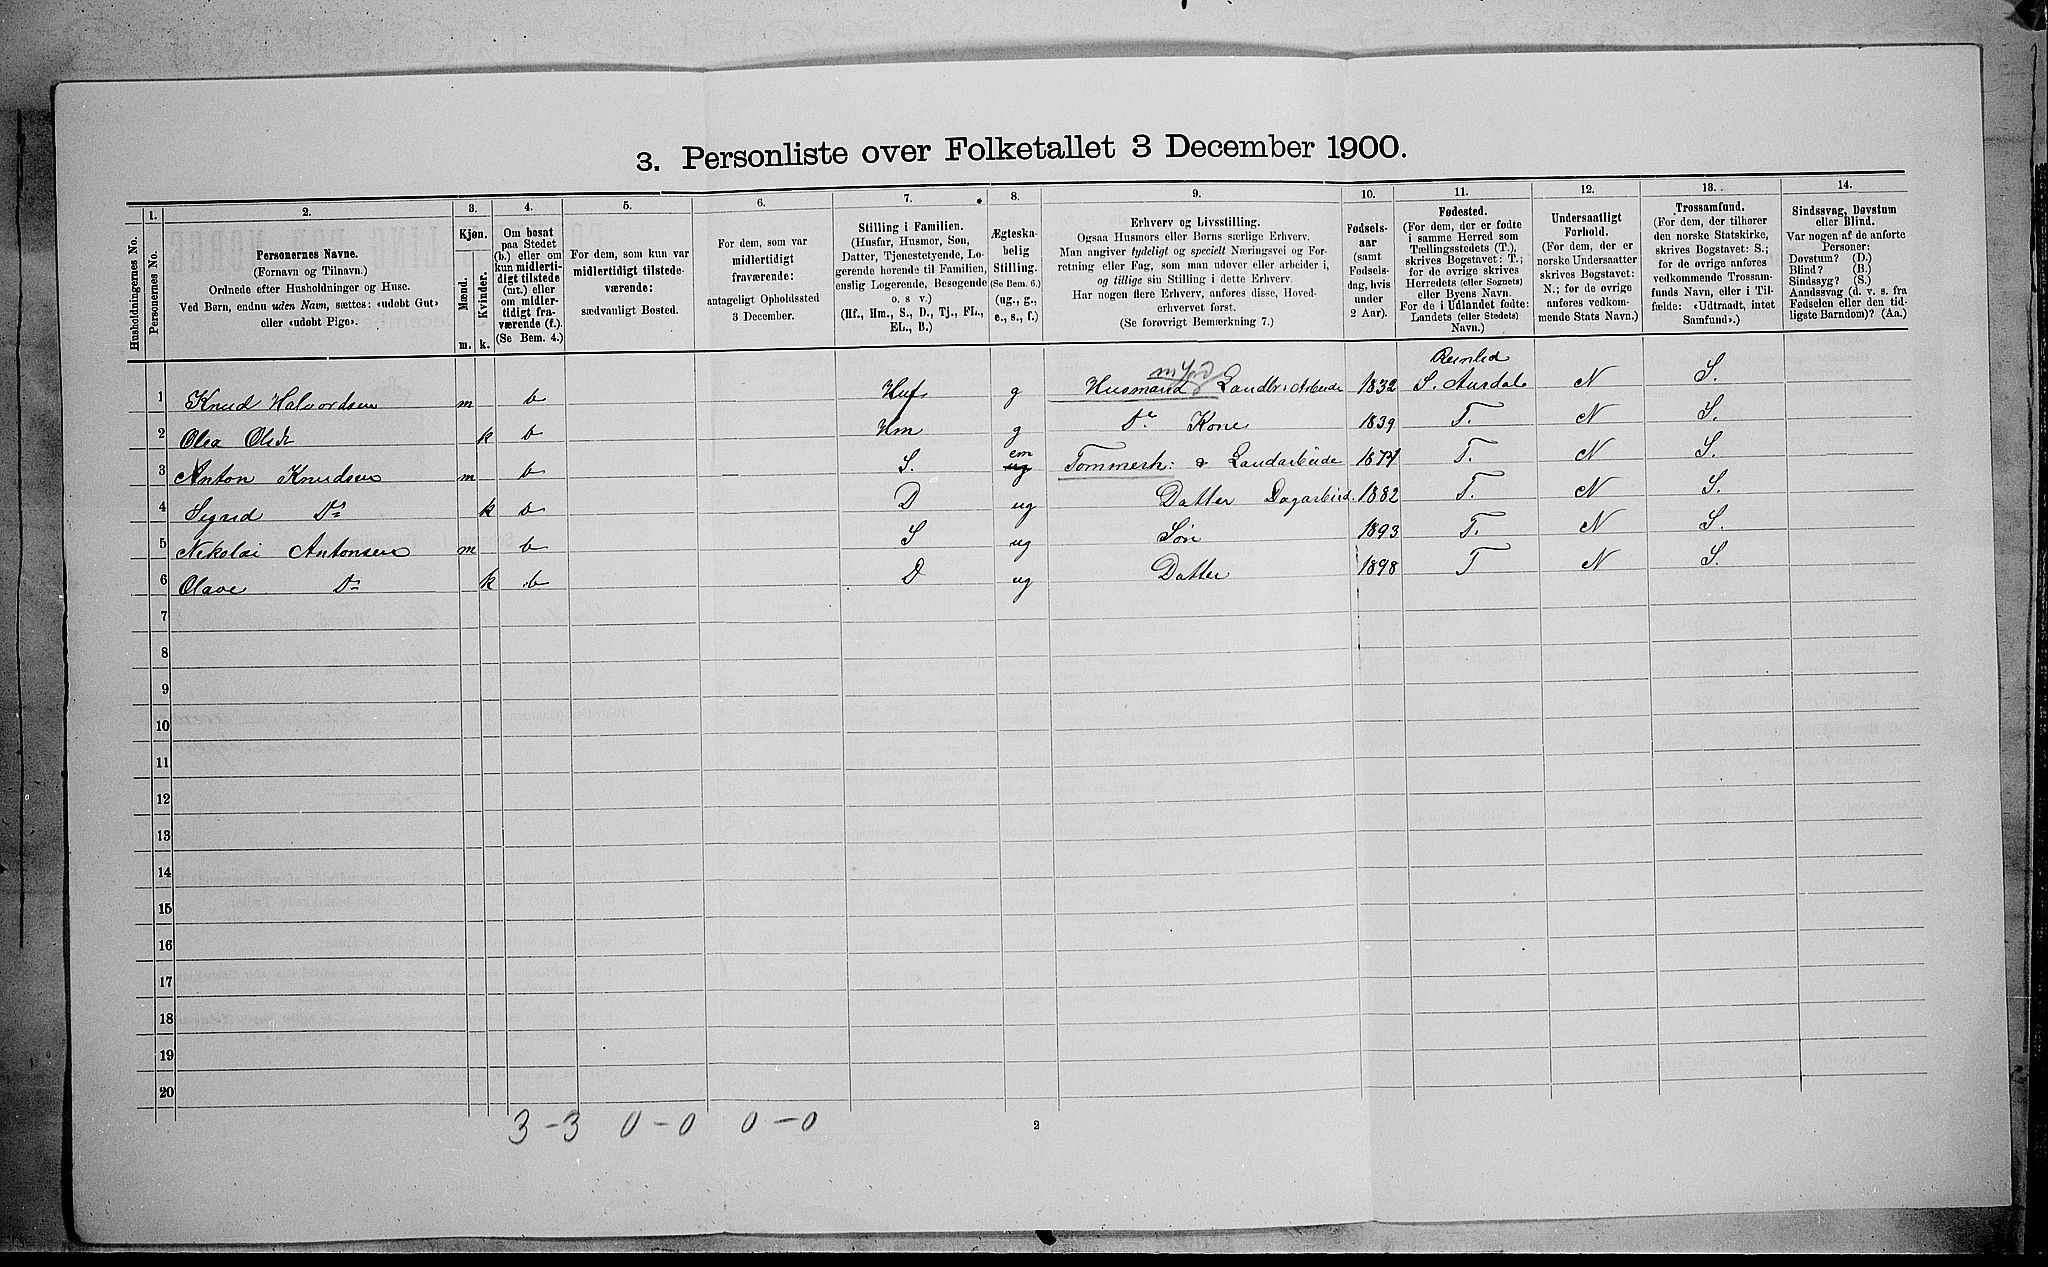 3. Personliste over Folketallet 3 December 1900.
Husholdningernes No.
1. Personernes No.
2. Personernes Navne. (Fornavn og Tilnavn.) Ordnede efter Husholdninger og Huse. Ved Børn, endnu uden Navn, sættes: «udøbt Gut» eller «udøbt Pige».
3. Kjøn. Mænd. m. Kvinder. k.
4. Om bosat paa Stedet (b.) eller om kun midlertidigt tilstede (mt.) eller om midlertidigt fraværende (f.) (Se Bem. 4.)
5. For dem, som kun var midlertidigt tilstedeværende: sædvanligt Bosted.
6. For dem, som var midlertidigt fraværende: antageligt Opholdssted 3 December.
7. Stilling i Familien. (Husfar, Husmor, Søn, Datter, Tjenestetyende, Logerende hørende til Familien, enslig Logerende, Besøgende o. s v.) (Hf., Hm., S., D., Tj., FL., EL., B.)
8. Ægteskabelig Stilling. (Se Bem. 6.) (ug., g., e., s., f.)
9. Erhverv og Livsstilling. Ogsaa Husmors eller Børns særlige Erhverv. Man angiver tydeligt og specielt Næringsvei og Forretning eller Fag, som man udover eller arbeider i, og tillige sin Stilling i dette Erhverv. Har nogen flere Erhverv, anføres disse, Hovederhvervet først. (Se forøvrigt Bemærkning 7.)
10. Fødselsaar (samt Fødselsdag, hvis under 2 Aar).
11. Fødested. (For dem, der er fødte i samme Herred som Tællingsstedets (T.), skrives Bogstavet: T.; for de øvrige skrives Herredets (eller Sognets) eller Byens Navn. For de i Udlandet fødte: Landets (eller Stedets) Navn.)
12. Undersaatligt Forhold. (For dem, der er norske Undersaatter skrives Bogstavet: N.; for de øvrige anføres vedkommende Stats Navn.)
13. Trossamfund. (For dem, der tilhører den norske Statskirke, skrives Bogstavet: S.; for de øvrige anføres vedkommende Trossamfunds Navn, eller i Tilfælde: «Udtraadt, intet Samfund».)
14. Sindssvag, Døvstum eller Blind. Var nogen af de anførte Personer: Døvstum? (D.) Blind? (B.) Sindssyg? (S.) Aandssvag (d. v. s. fra Fødselen eller den tidligste Barndom)? (Aa.)
m jord
1 Knud Halvordsen m b Huf g Husmand Landbr: Arbeide 1832 S. Ausdal N S.
2 Olea Olsdr k b Hm g Do Kone 1839 T. N S.
3 Anton Knudsen m b S. ug em Tømmerh: & Landarbeide 1871 T. N S.
4 Sigrid Do k b D ug Datter Dagarbeid. 1882 T. N S.
5 Nikolai Antonsen m b S ug Søn 1893 T. N S.
6 Olave Do k b D ug Datter 1898 T N S.
7
8
9
10
11
12
13
14
15
16
17
18
19
20
3-3 0-0 0-0
2